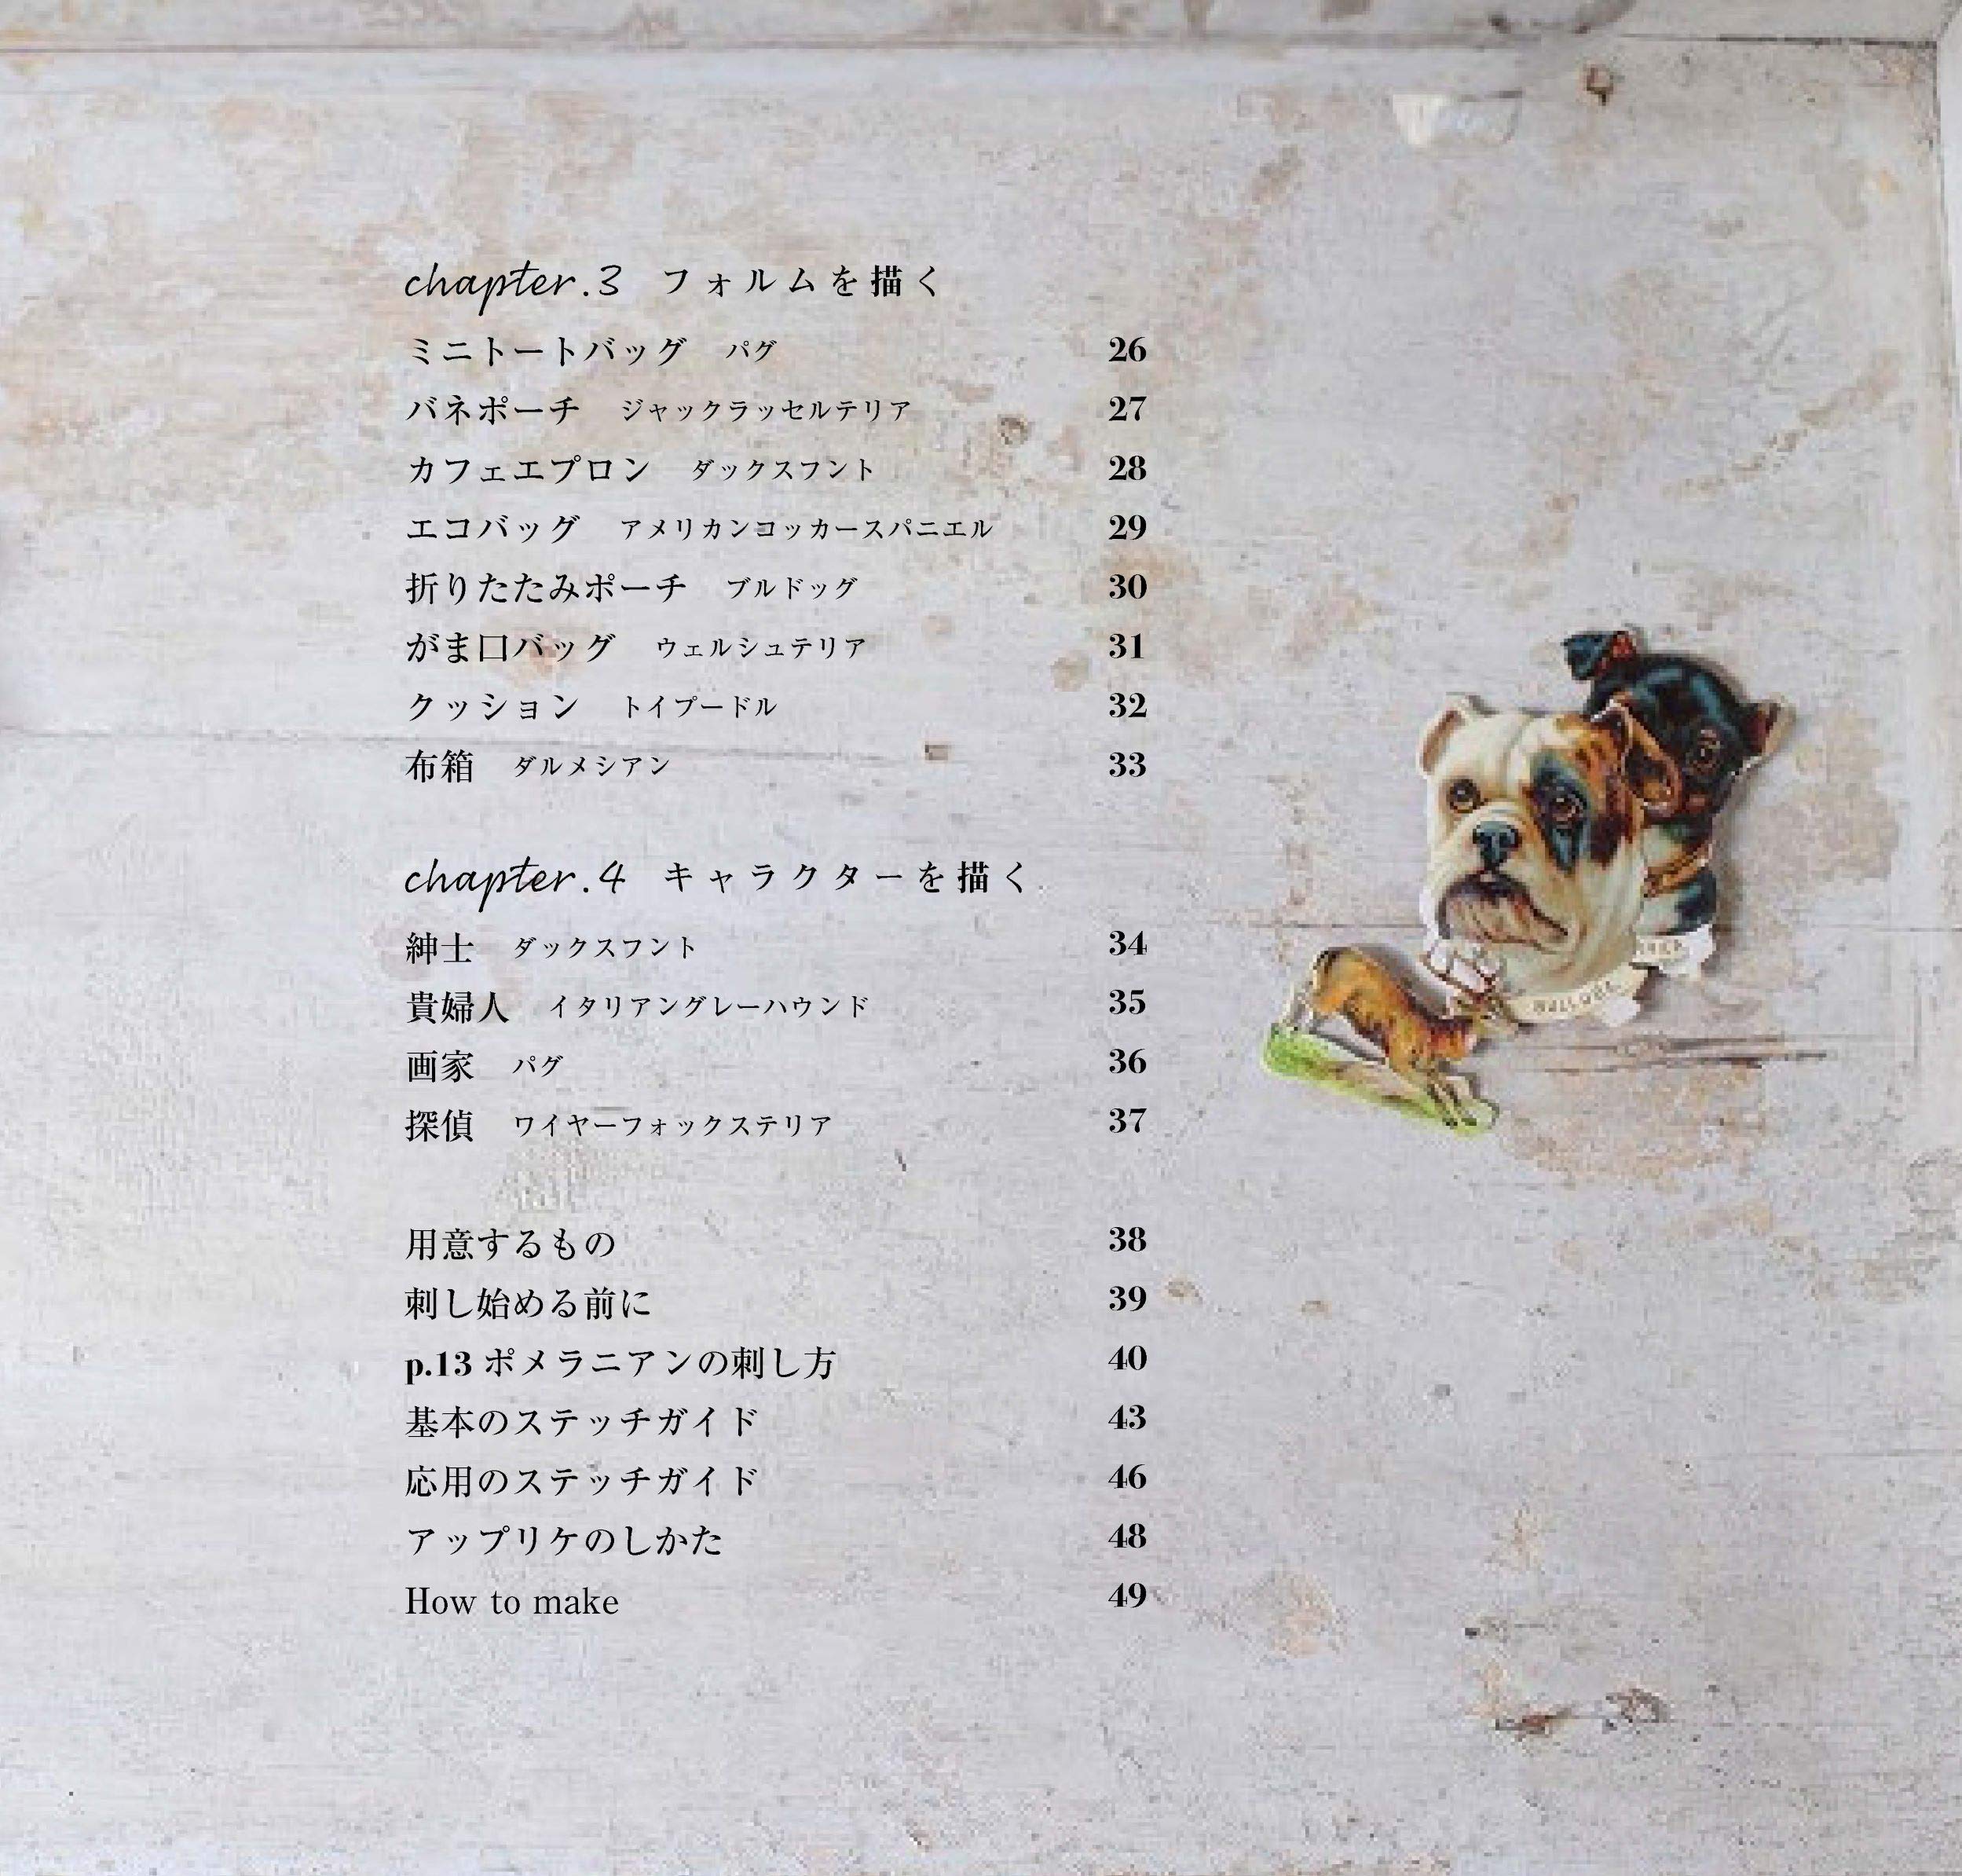 chapter.3 フォルムを描く
ミニトートバッグ パグ 26
バネポーチ ジャックラッセルテリア 27
カフェエプロン ダックスフント 28
エコバッグ アメリカンコッカースパニエル 29
折りたたみポーチ ブルドッグ 30
がま口バッグ ウェルシュテリア 31
クッション トイプードル 32
布箱 ダルメシアン 33
chapter.4 キャラクターを描く
紳士 ダックスフント 34
貴婦人 イタリアングレーハウンド 35
画家 パグ 36
探偵 ワイヤーフォックステリア 37
用意するもの 38
刺し始める前に 39
p.13 ポメラニアンの刺し方 40
基本のステッチガイド 43
応用のステッチガイド 46
アップリケのしかた 48
How to make 49
BULLDOG